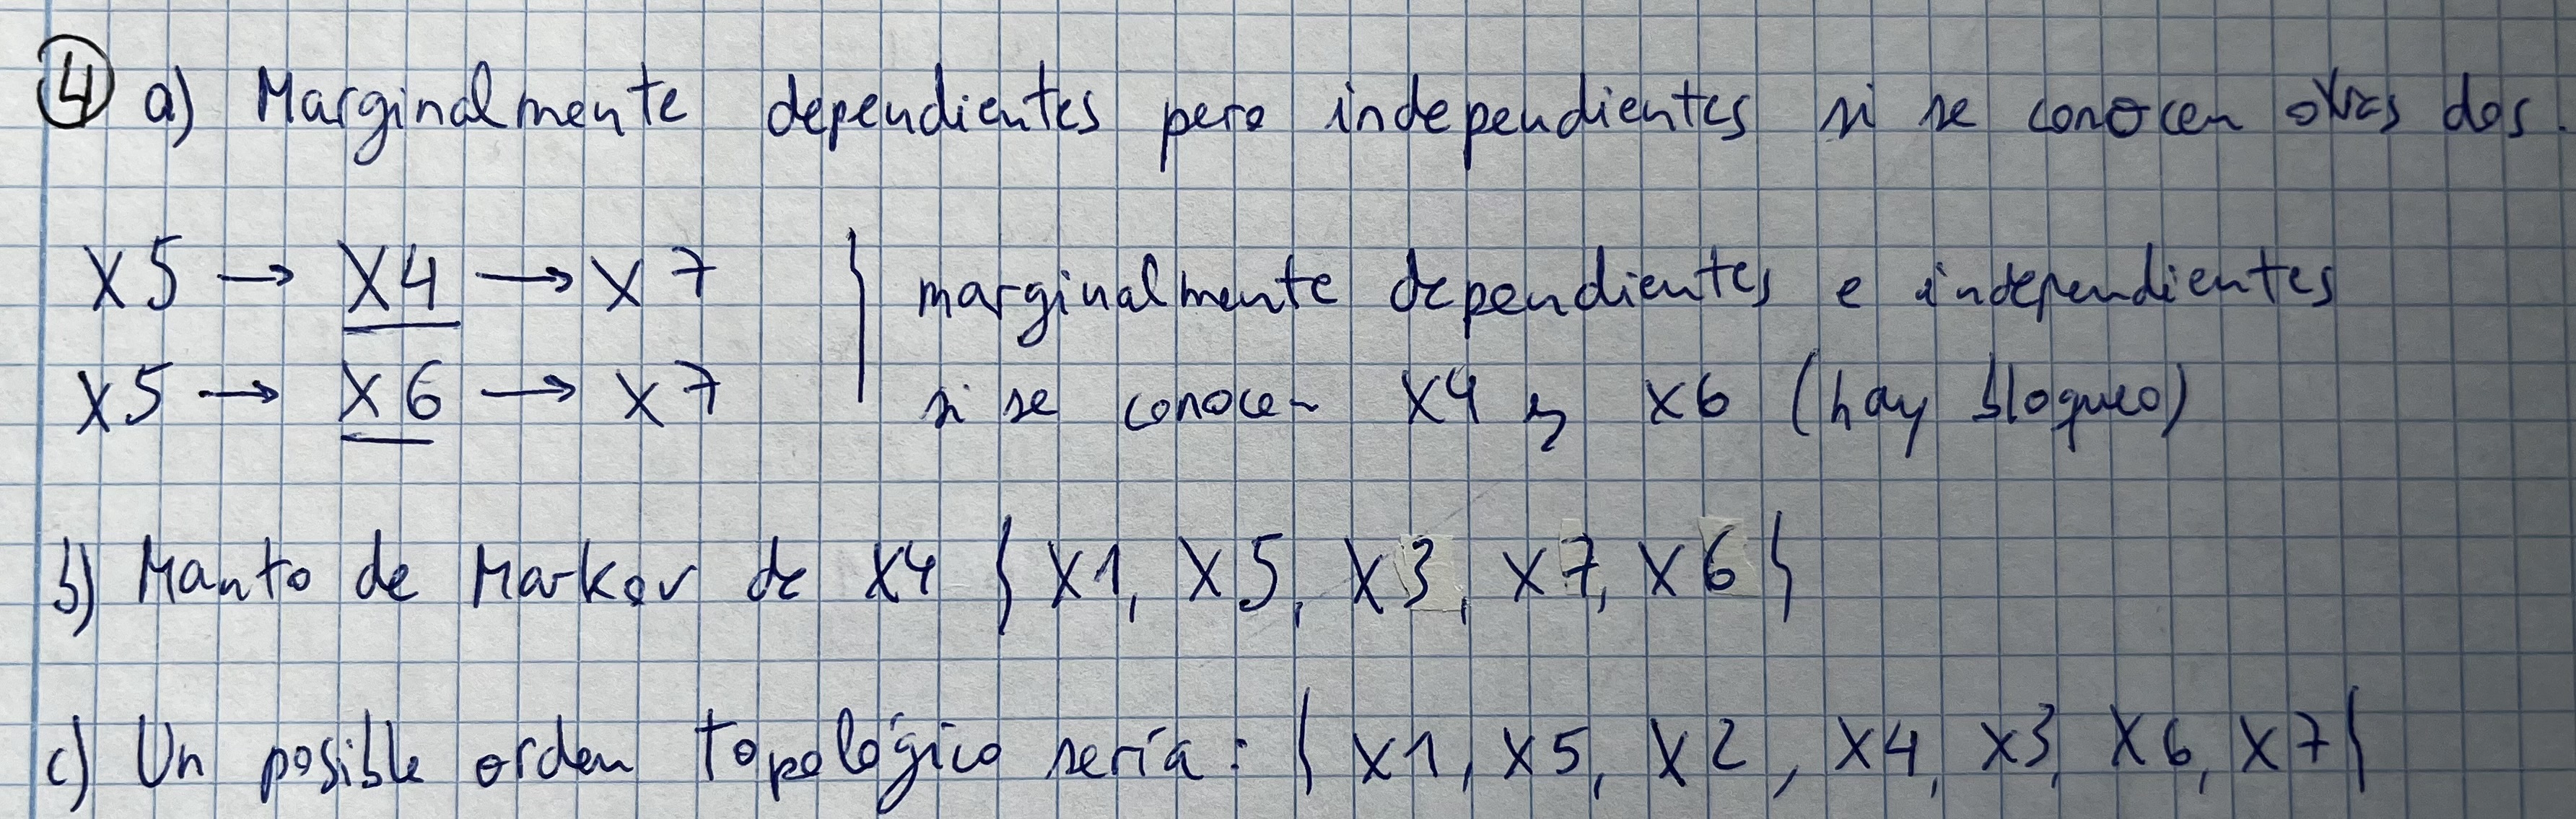 ④ a) Marginalmente dependientes pero independientes si se conocen otras dos.
X5 → X4 → X7 } marginalmente dependientes e independientes
X5 → X6 → X7 si se conocen X4 y X6 (hay bloqueo)
b) Manto de Markov de X4 { X1, X5, X3, X7, X6 }
c) Un posible orden topológico sería: { X1, X5, X2, X4, X3, X6, X7 }